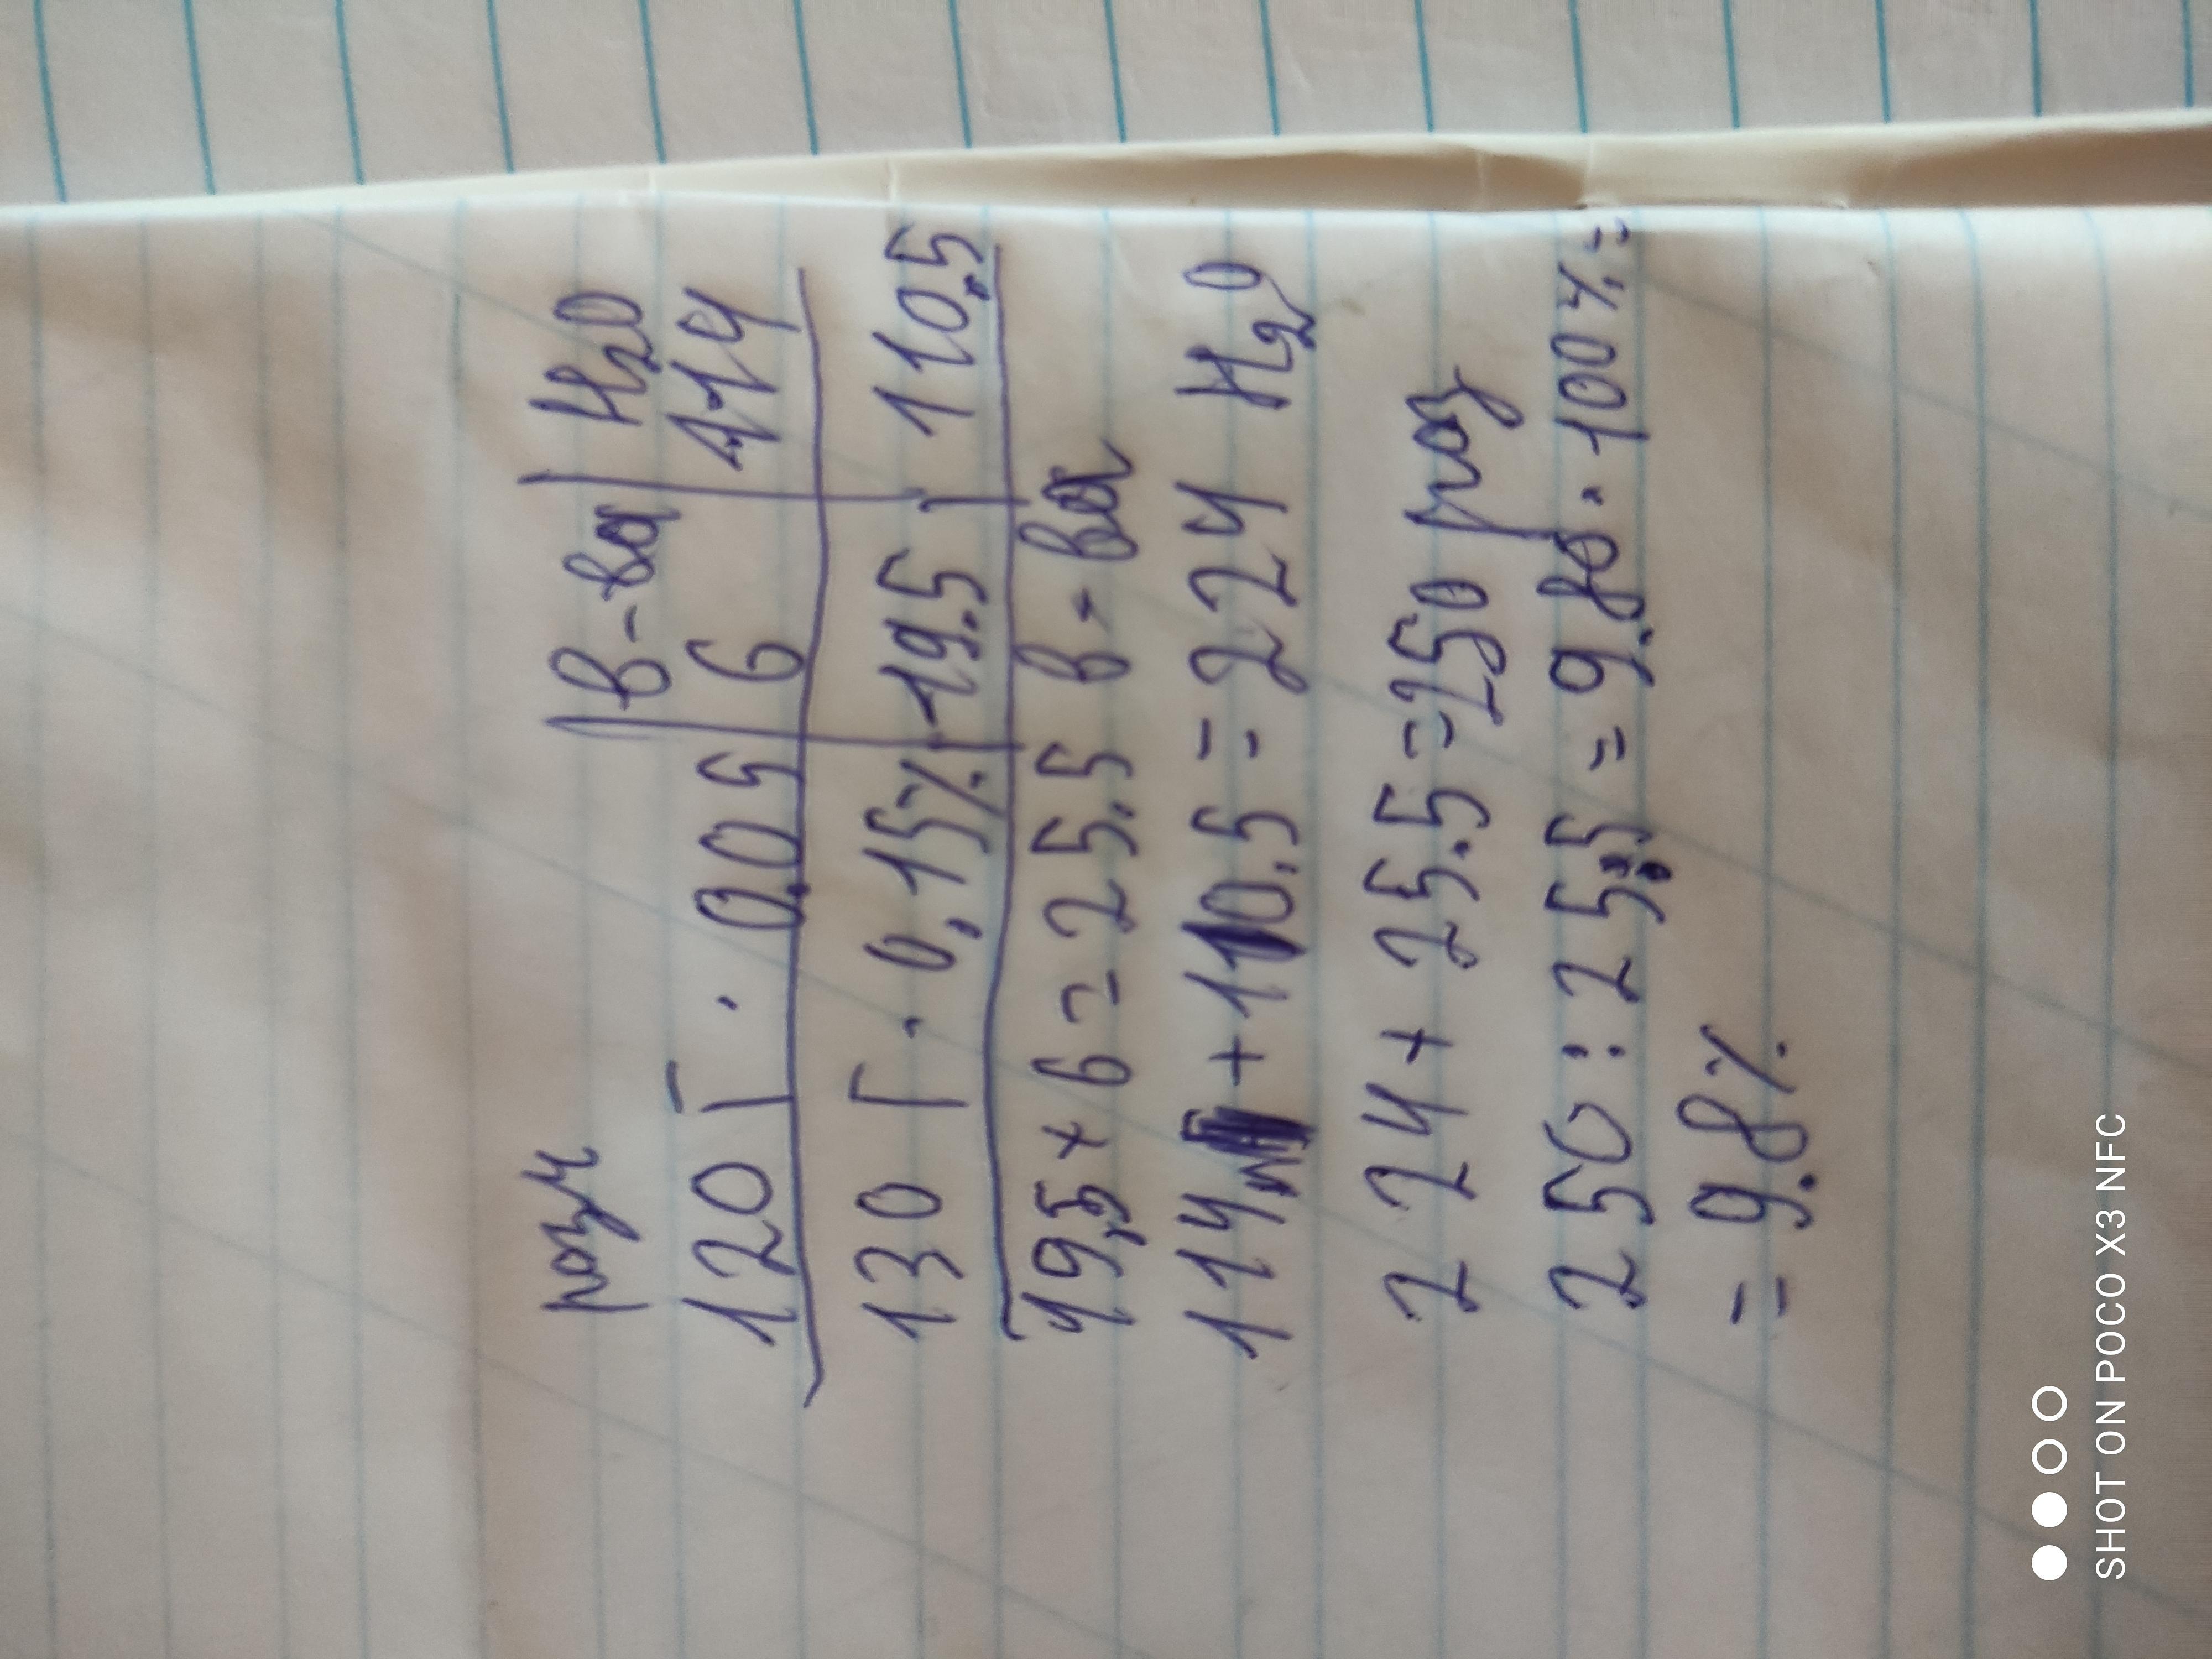 в-ва | H₂O
120 Г · 0.05 | 6 | 114
130 Г · 0,15% | 19.5 | 110.5
19,5 + 6 = 25.5 в-ва
114 + 110.5 = 224 H₂O
224 + 25.5 = 250
250 : 25.5 = 9.80 · 100% =
= 9.8%
SHOT ON POCO X3 NFC